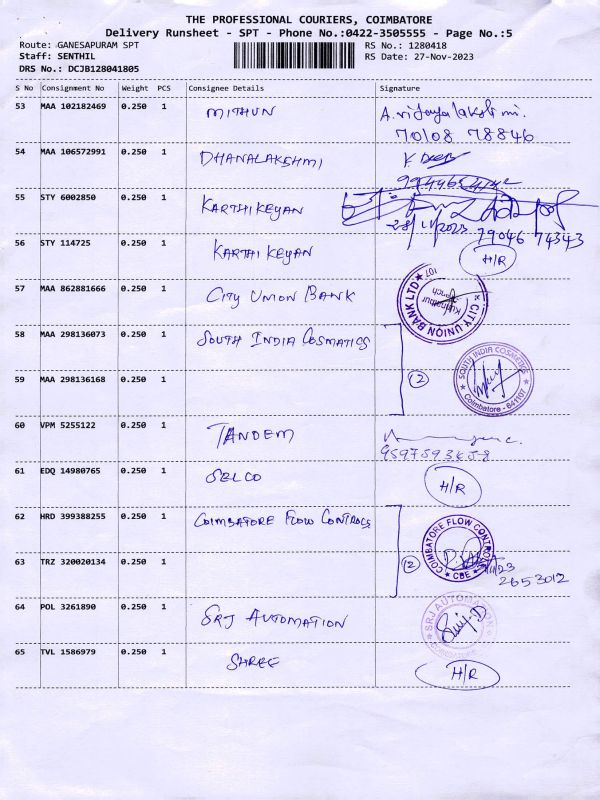 THE PROFESSIONAL COURIERS, COIMBATORE
Delivery Runsheet - SPT - Phone No.:0422-3505555 - Page No.:5
Route: GANESAPURAM SPT RS No.: 1280418
Staff: SENTHIL RS Date: 27-Nov-2023
DRS No.: DCJB128041805
S No Consignment No Weight PCS Consignee Details Signature
53 MAA 102182469 0.250 1 MITHUN A.vijayalakshmi.
70108 78846
54 MAA 106572991 0.250 1 DHANALAKSHMI
55 STY 6002850 0.250 1 KARTHIKEYAN
28/11/2023 79046 74343
56 STY 114725 0.250 1 KARTHIKEYAN H/R
57 MAA 862881666 0.250 1 CITY UNION BANK CITY UNION BANK LTD 107 Branch
58 MAA 298136073 0.250 1 SOUTH INDIA COSMATICS
59 MAA 298136168 0.250 1 (2) SOUTH INDIA COSMETICS Coimbatore - 641107
60 VPM 5255122 0.250 1 TANDEM
61 EDQ 14980765 0.250 1 SELCO H/R
62 HRD 399388255 0.250 1 COIMBATORE FLOW CONTROLS COIMBATORE FLOW CONTROLS CBE
63 TRZ 320020134 0.250 1 (2)
2653012
64 POL 3261890 0.250 1 SRJ AUTOMATION SRJ AUTOMATION COIMBATORE
65 TVL 1586979 0.250 1 SHREE H/R